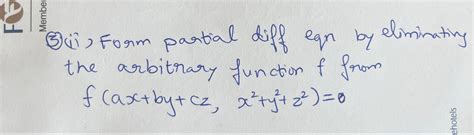 ③(i), Form partial diff eqn by eliminating
the arbitrary function f from
f (ax+by+cz, x²+y²+z²)=0
Membe
ehotels